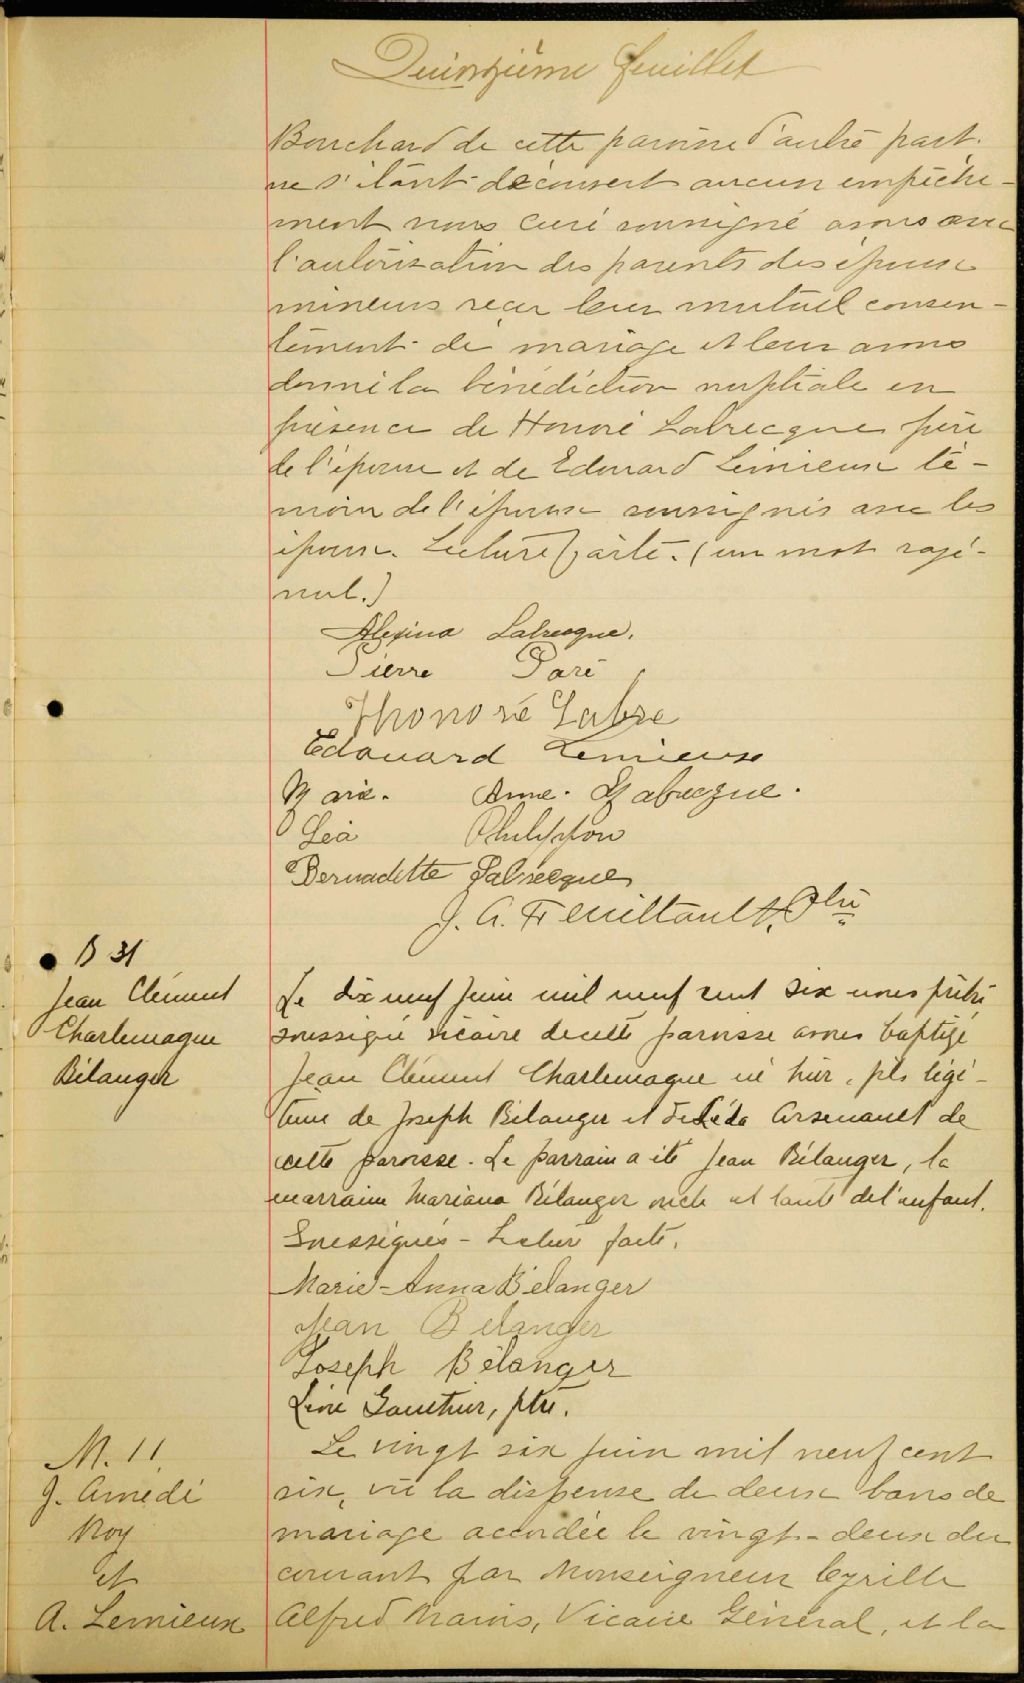 Quinzième feuillet
Bouchard de cette paroisse d'autre part.
ne s'étant découvert aucun empêche-
ment nous curé soussigné avons avec
l'autorisation des parents des époux
mineurs reçu leur mutuel consen-
tement de mariage et leur avons
donné la bénédiction nuptiale en
présence de Honoré Labrecque père
de l'épouse et de Edouard Lemieux té-
moin de l'époux soussignés avec les
époux. Lecture faite. (un mot rayé
nul.)
Alexina Labrecque.
Pierre Paré
Thonoré Labre
Edouard Lemieux
Marie. Anne. Labrecque.
Léa Philippon
Bernadette Labrecque
J. A. Feuiltault, Ptre
B 31
Jean Clément
Charlemagne
Bélanger
Le dix neuf Juin mil neuf cent six nous prêtre
soussigné vicaire de cette paroisse avons baptisé
Jean Clément Charlemagne né hier, fils légi-
time de Joseph Bélanger et de Léda Arsenault de
cette paroisse. Le parrain a été Jean Bélanger, la
marraine Mariana Bélanger oncle et tante de l'enfant.
Soussignés - Lecture faite.
Marie-Anna Bélanger
Jean Bélanger
Joseph Bélanger
Gauthier, ptre.
M. 11
J. Amédé
Roy
et
A. Lemieux
Le vingt six juin mil neuf cent
six, vu la dispense de deux bans de
mariage accordée le vingt-deux du
courant par Monseigneur Cyrille
Alfred Marois, Vicaire Général, et la